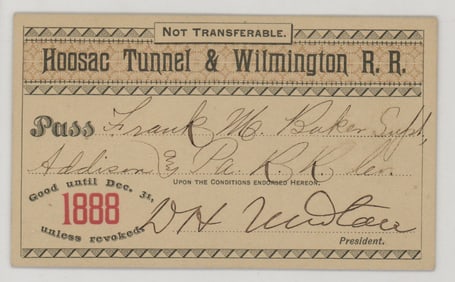 NOT TRANSFERABLE.
Hoosac Tunnel & Wilmington R. R.
Pass Frank M. Baker Supt,
Addison & Pa. R. R. Co.
UPON THE CONDITIONS ENDORSED HEREON.
Good until Dec. 31,
1888
unless revoked.
D H Newton
President.